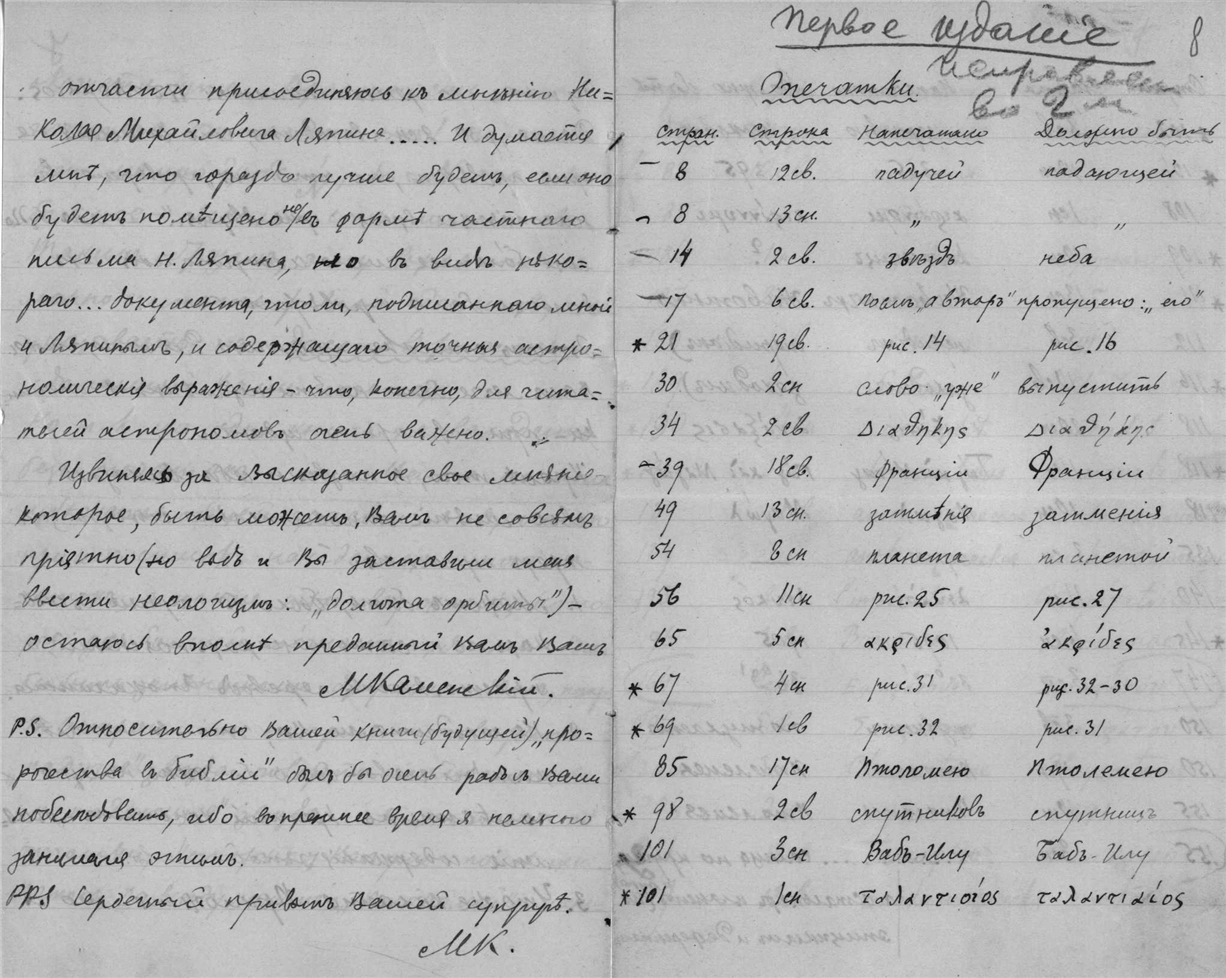 отчасти присоединяюсь къ мнѣнію Ни=
колая Михайловича Ляпина ..... И думается
мнѣ, что гораздо лучше будетъ, если оно
будетъ помѣщено не въ формѣ частнаго
письма Н. Ляпина, но въ видѣ нѣко=
раго... документа, что ли, подписаннаго мной
и Ляпинымъ, и содержащаго точныя астро=
номическія выраженія – что, конечно, для чита=
телей астрономовъ очень важно.
Извиняясь за высказанное свое мнѣніе
которое, быть можетъ, Вамъ не совсѣмъ
пріятно (но вѣдь и Вы заставили меня
ввести неологизмъ: „долгота орбиты") –
остаюсь вполнѣ преданный Вамъ Вашъ
МКаменскій.
P.S. Относительно Вашей книги (будущей) „про=
рочества въ библіи" былъ бы очень радъ съ Вами
побесѣдовать, ибо въ прежнее время я немного
занимался этимъ.
PPS Сердечный привѣтъ Вашей супругѣ.
МК.
Первое изданіе 8
Исправлены
во 2 м
Опечатки.
Стран. Строка Напечатано Должно быть
– 8 12 св. падучей падающей
– 8 13 сн. „ „
– 14 2 св. звѣздъ неба
– 17 6 св. послѣ „авторъ" пропущено: „его"
* 21 19 св. рис. 14 рис. 16
30 2 сн слово „уже" выпустить
34 2 св. Διαθηκης Διαθήκης
– 39 18 св. франціи Франціи
49 13 сн. затмѣнія затменія
54 8 сн планета планетой
56 11 сн рис. 25 рис. 27
65 5 сн ακρίδες ἀκρίδες
* 67 4 сн рис. 31 рис. 32–30
* 69 1 св рис. 32 рис. 31
85 17 сн Птоломею Птолемею
* 98 2 св спутниковъ спутницъ
101 3 сн Вабъ-Илу Бабъ-Илу
* 101 1 сн ταλαντιοίος ταλαντιαίος